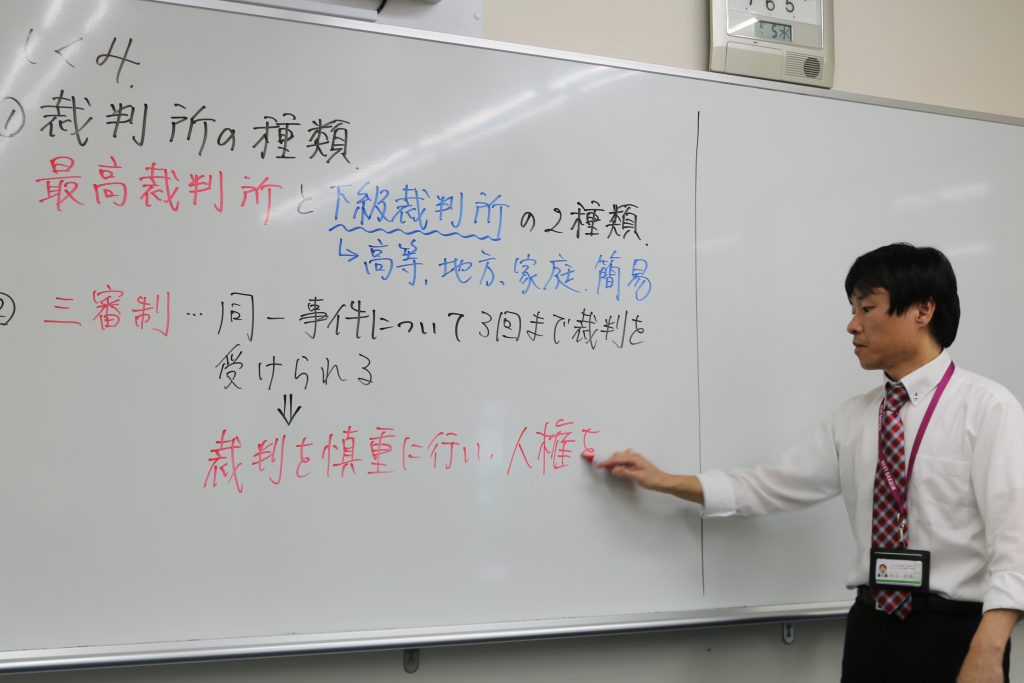 しくみ.
① 裁判所の種類.
最高裁判所と下級裁判所の2種類.
↳高等,地方、家庭.簡易
② 三審制…同一事件について3回まで裁判を
受けられる
⇓
裁判を慎重に行い、人権を
765
5水